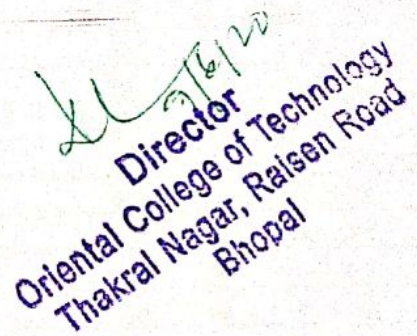 Director
Oriental College of Technology
Thakral Nagar, Raisen Road
Bhopal